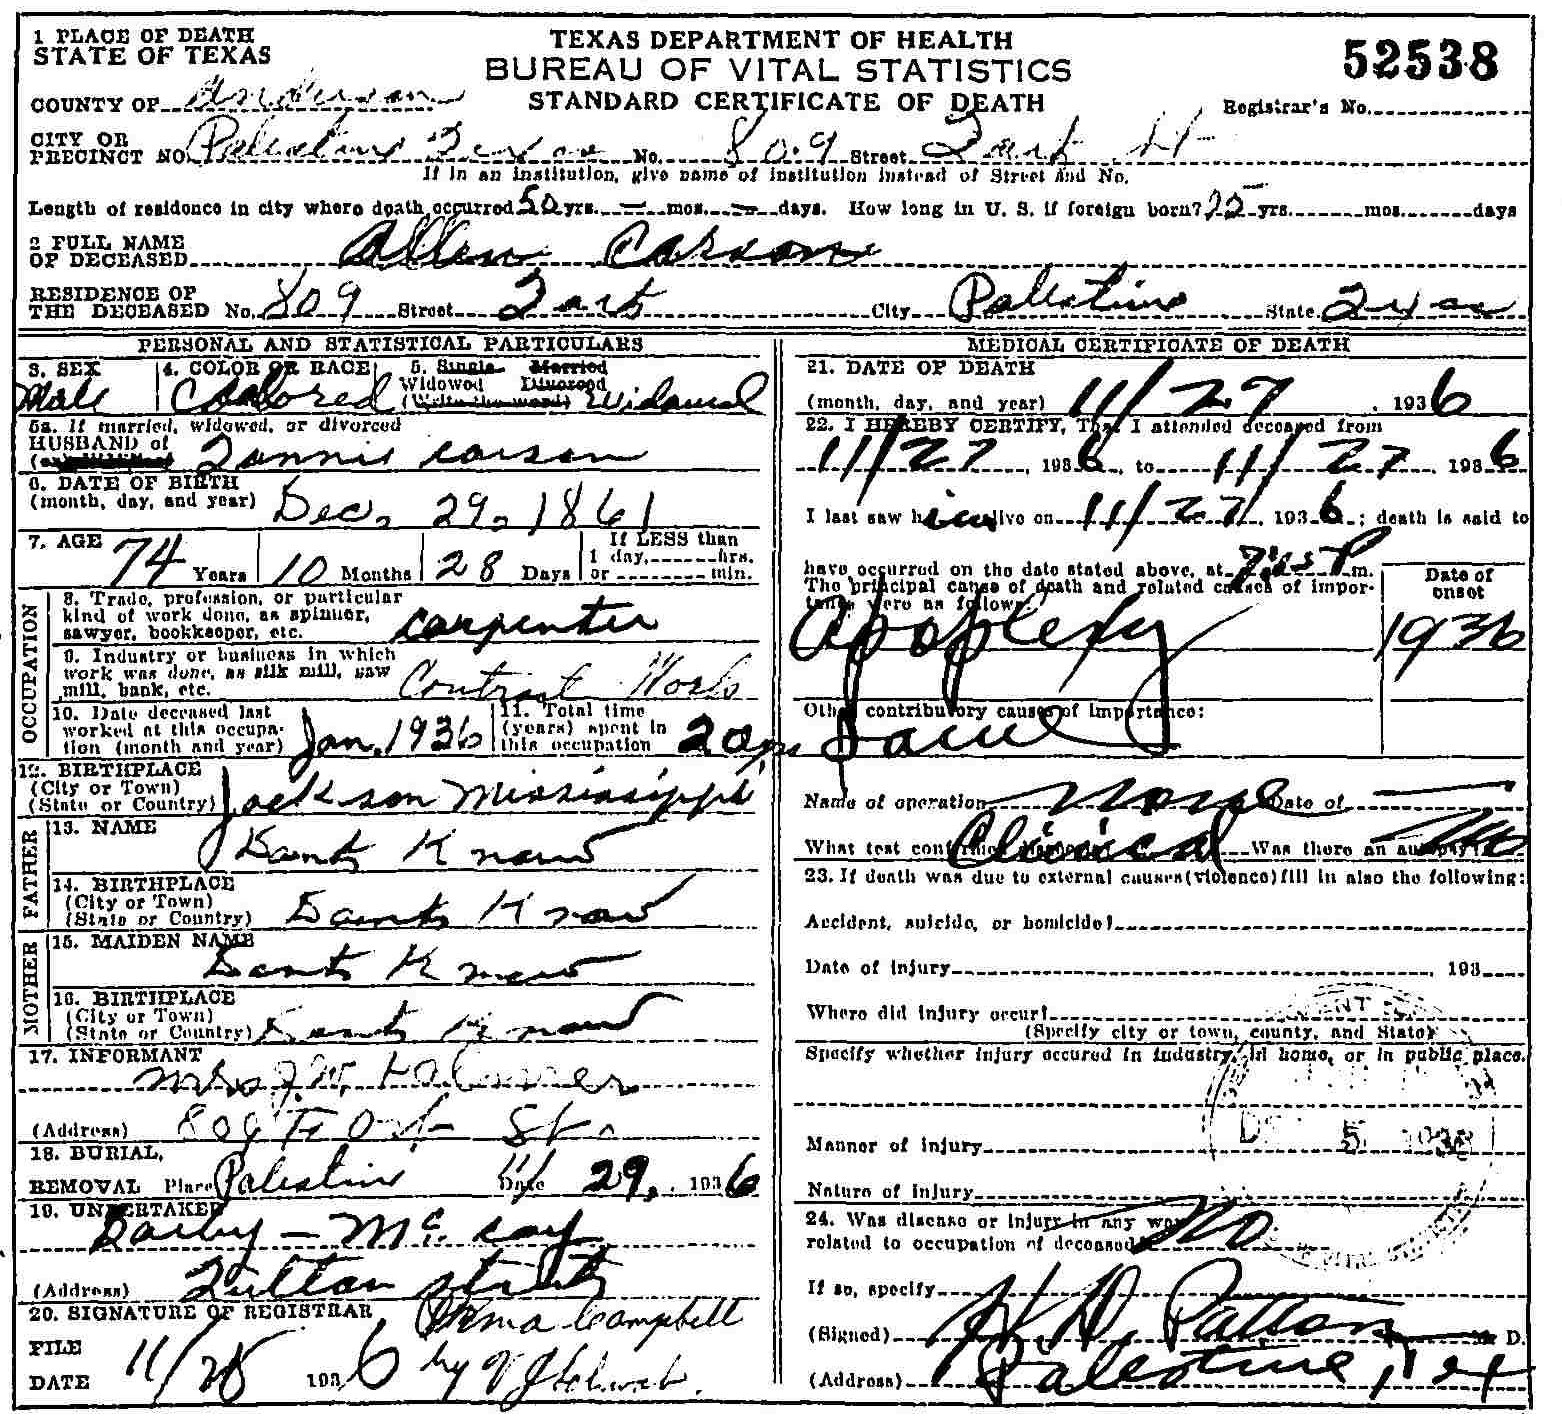 1 PLACE OF DEATH
STATE OF TEXAS
TEXAS DEPARTMENT OF HEALTH
BUREAU OF VITAL STATISTICS
STANDARD CERTIFICATE OF DEATH
52538
COUNTY OF Anderson
Registrar's No.
CITY OR
PRECINCT NO. Palestine Texas No. 809 Street
If in an institution, give name of institution instead of Street and No.
Length of residence in city where death occurred 50 yrs. – mos. – days. How long in U. S. if foreign born? 75 yrs. mos. days
2 FULL NAME
OF DECEASED Allen Carson
RESIDENCE OF
THE DECEASED No. 809 Street City Palestine State Texas
PERSONAL AND STATISTICAL PARTICULARS
3. SEX
Male
4. COLOR OR RACE
Colored
5. Single Married
Widowed Divorced
(Write the word) Widowed
5a. If married, widowed, or divorced
HUSBAND of
Fannie Carson
6. DATE OF BIRTH
(month, day, and year) Dec. 29, 1861
7. AGE
74 Years 10 Months 28 Days
If LESS than
1 day, hrs.
or min.
OCCUPATION
8. Trade, profession, or particular
kind of work done, as spinner,
sawyer, bookkeeper, etc. Carpenter
9. Industry or business in which
work was done, as silk mill, saw
mill, bank, etc. Contract Work
10. Date deceased last
worked at this occupa-
tion (month and year) Jan. 1936
11. Total time
(years) spent in
this occupation 20
12. BIRTHPLACE
(City or Town)
(State or Country) Jackson Mississippi
FATHER
13. NAME
Dont Know
14. BIRTHPLACE
(City or Town)
(State or Country) Dont Know
MOTHER
15. MAIDEN NAME
Dont Know
16. BIRTHPLACE
(City or Town)
(State or Country) Dont Know
17. INFORMANT
Mrs J. W.
(Address) 809 St.
18. BURIAL,
REMOVAL Place Palestine Date 11/ 29, 1936
19. UNDERTAKER
McCoy
(Address) Fulton Street
20. SIGNATURE OF REGISTRAR Erma Campbell
FILE
DATE 11/28 1936 by
MEDICAL CERTIFICATE OF DEATH
21. DATE OF DEATH
(month, day, and year) 11/27, 1936
22. I HEREBY CERTIFY, That I attended deceased from
11/27, 1936, to 11/27, 1936
I last saw him alive on 11/27, 1936; death is said to
have occurred on the date stated above, at P m.
The principal cause of death and related causes of impor-
tance were as follows:
Apoplexy
Date of
onset
1936
Other contributory causes of importance:
Name of operation None Date of
What test confirmed diagnosis Clinical Was there an autopsy? No
23. If death was due to external causes (violence) fill in also the following:
Accident, suicide, or homicide?
Date of injury , 193
Where did injury occur?
(Specify city or town, county, and State)
Specify whether injury occured in industry, in home, or in public place.
Manner of injury
Nature of injury
24. Was disease or injury in any way
related to occupation of deceased? No
If so, specify
(Signed) H. D. Patton M. D.
(Address) Palestine, Tex